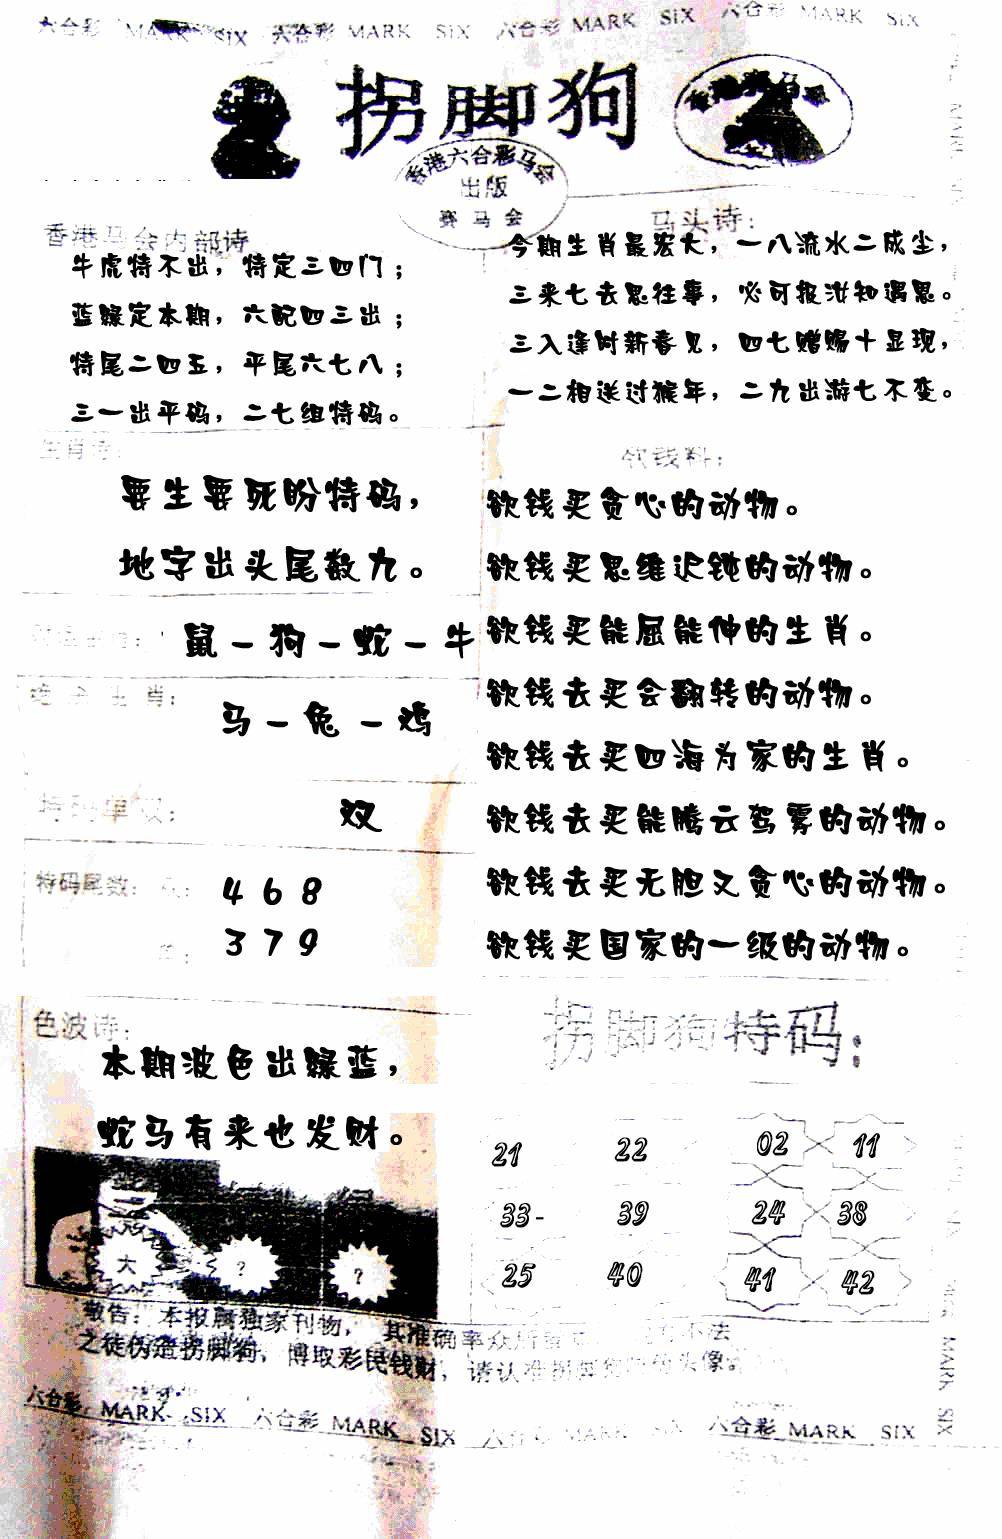 六合彩 MARK SIX 六合彩 MARK SIX 六合彩 MARK SIX 六合彩 MARK SIX
拐脚狗
香港六合彩马会
出版
赛马会
香港马会内部诗
牛虎特不出，特定三四门；
蓝绿定本期，六配四三出；
特尾二四五，平尾六七八；
三一出平码，二七组特码。
马头诗：
今期生肖最宏大，一八流水二成尘，
三来七去思往事，必可报汝知遇恩。
三入逢时新春见，四七赠赐十显现，
一二相送过猴年，二九出游七不变。
生肖诗：
要生要死盼特码，
地字出头尾数九。
鼠－狗－蛇－牛
生肖：
马－兔－鸡
特码单双：
双
特码尾数：
4 6 8
3 7 9
欲钱料：
欲钱买贪心的动物。
欲钱买思维迟钝的动物。
欲钱买能屈能伸的生肖。
欲钱去买会翻转的动物。
欲钱去买四海为家的生肖。
欲钱去买能腾云驾雾的动物。
欲钱去买无胆又贪心的动物。
欲钱买国家的一级的动物。
色波诗：
本期波色出绿蓝，
蛇马有来也发财。
大 ? ?
拐脚狗特码：
21 22 02 11
33- 39 24 38
25 40 41 42
敬告：本报属独家刊物，其准确率众所 不法
之徒伪造拐脚狗，博取彩民钱财，请认准拐脚 头像。
六合彩 MARK SIX 六合彩 MARK SIX 六合彩 MARK SIX 六合彩 MARK SIX
MARK SIX